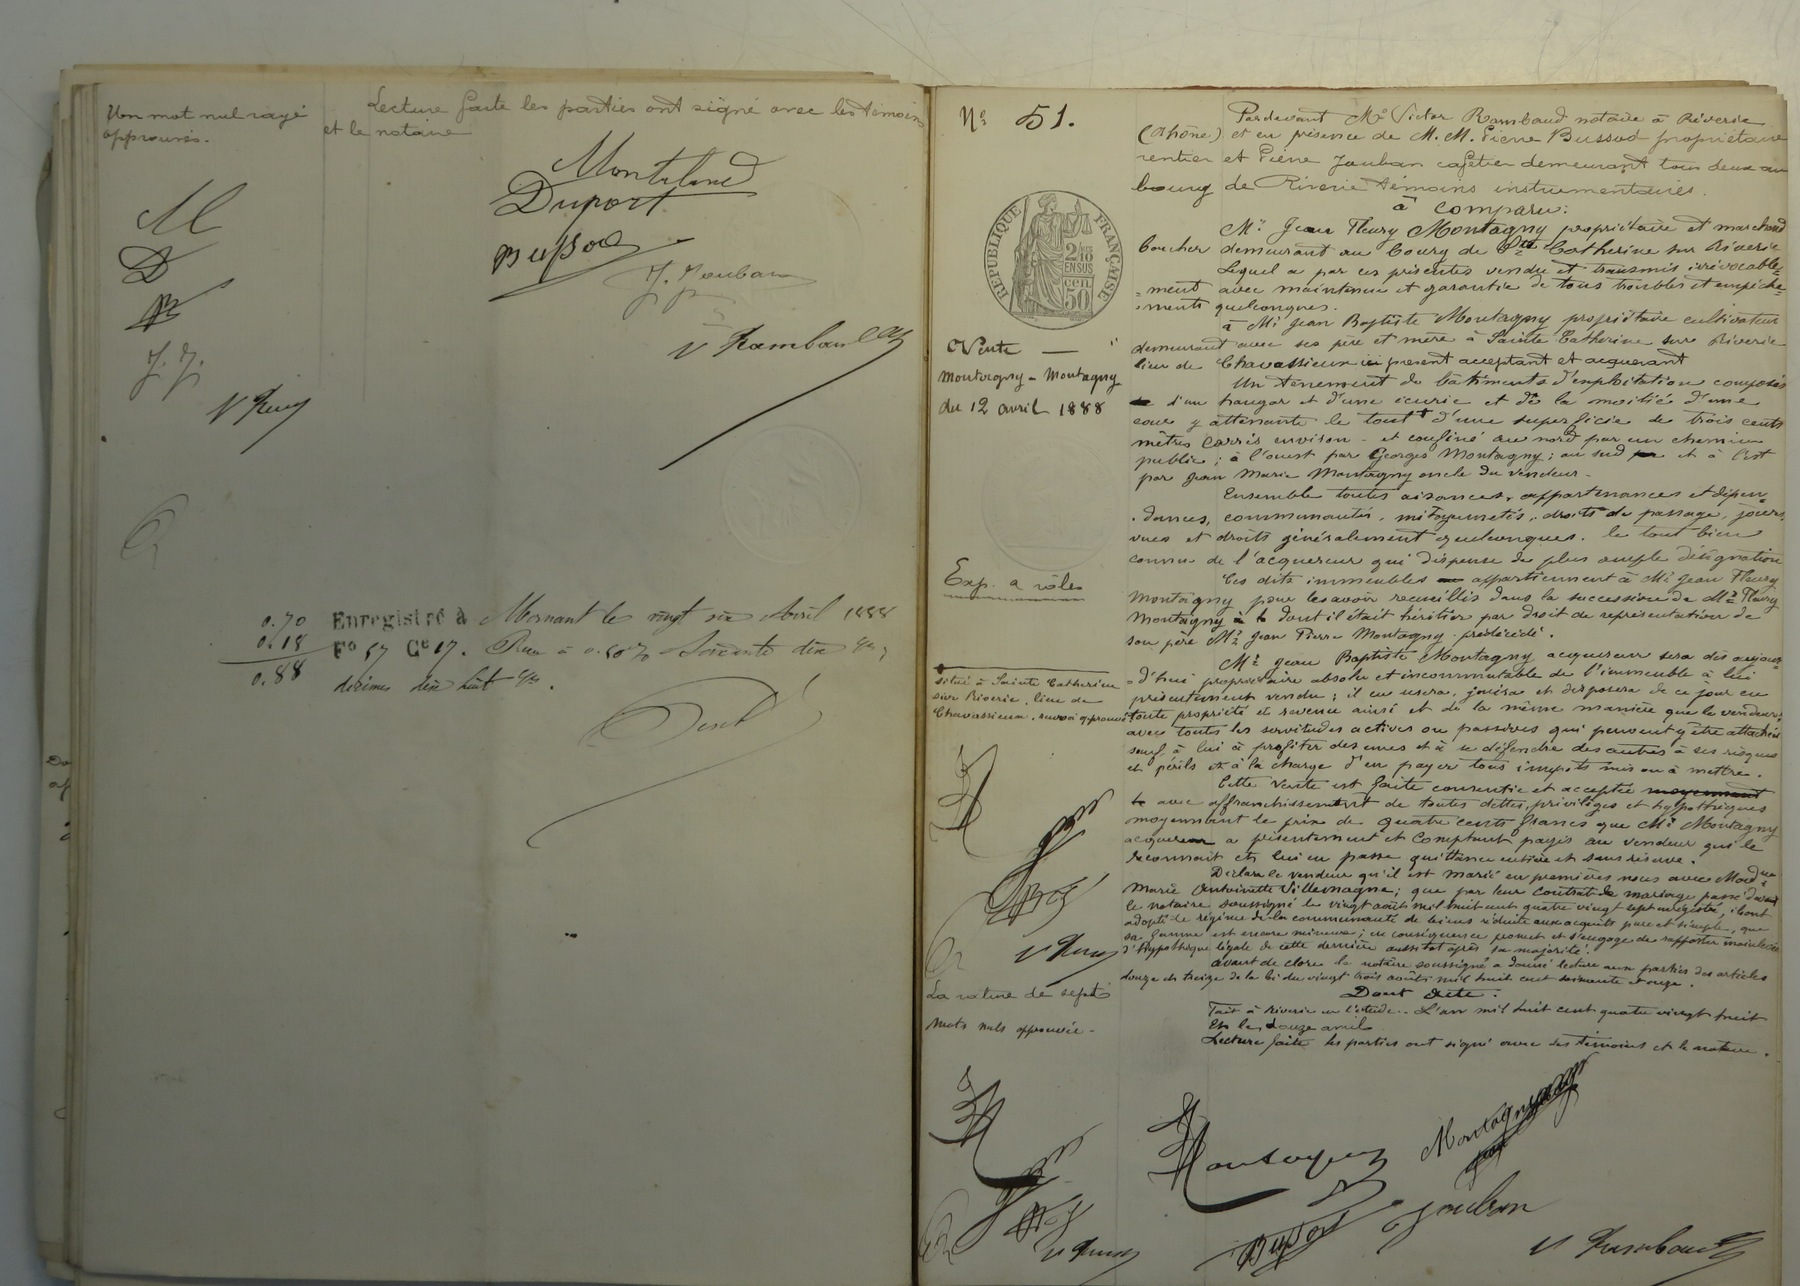 Un mot nul rayé
approuvés.
Lecture faite les parties ont signé avec les témoins
et le notaire
M
D
J. J.
Duport
Bussod
J. Jouban
V Rambaud
0.70
0.18
0.88
Enregistré à Mornant le vingt six Avril 1888
Fo 57 Ce 17. Reçu à 0.50 % Soixante dix ces,
décimes dix huit ces.
No 51.
RÉPUBLIQUE FRANÇAISE
2/10 EN SUS
50 cen
Vente —
Montagny - Montagny
du 12 avril 1888
Exp. 2 rôles
situé à Sainte Catherine
sur Riverie, lieu de
Chavassieux. renvoi approuvé
La rature de sept
mots nuls approuvée -
Pardevant Me Victor Rambaud notaire à Riverie
(Rhône) et en présence de M.M. Pierre Bussod propriétaire
rentier et Pierre Jouban cafetier demeurant tous deux au
bourg de Riverie témoins instrumentaires.
à comparu:
Mr Jean Fleury Montagny propriétaire et marchand
boucher demeurant au bourg de Ste Catherine sur Riverie
Lequel a par ces présentes vendu et transmis irrévocable=
=ment avec maintenue et garantie de tous troubles et empêche=
=ments quelconques.
à Mr Jean Baptiste Montagny propriétaire cultivateur
demeurant avec ses père et mère à Sainte Catherine sur Riverie
lieu de Chavassieux ici présent acceptant et acquérant
Un tènement de bâtiments d'exploitation composés
d'un hangar et d'une écurie et de la moitié d'une
cour y attenante le tout d'une superficie de trois cents
mètres carrés environ - et confiné au nord par un chemin
public; à l'ouest par Georges Montagny; au sud et à l'est
par Jean Marie Montagny oncle du vendeur -
Ensemble toutes aisances, appartenances et dépen=
=dances, communautés, mitoyennetés, droits de passage, jours,
vues et droits généralement quelconques. le tout bien
connu de l'acquéreur qui dispense de plus ample désignation
Ces dits immeubles appartiennent à Mr Jean Fleury
Montagny pour les avoir recueillis dans la succession de Mr Fleury
Montagny dont il était héritier par droit de représentation de
son père Mr Jean Pierre Montagny prédécédé.
Mr Jean Baptiste Montagny acquéreur sera dès aujour=
=d'hui propriétaire absolu et incommutable de l'immeuble à lui
présentement vendu; il en usera, jouira et disposera de ce jour en
toute propriété et revenu ainsi et de la même manière que le vendeur,
avec toutes les servitudes actives ou passives qui peuvent y être attachées
sauf à lui à profiter des unes et à se défendre des autres à ses risques
et périls et à la charge d'en payer tous impôts mis ou à mettre.
Cette vente est faite consentie et acceptée moyennant
avec affranchissement de toutes dettes, privilèges et hypothèques
moyennant le prix de quatre cents francs que Mr Montagny
acquéreur a présentement et comptant payés au vendeur qui le
reconnait et lui en passe quittance entière et sans réserve.
Déclare le vendeur qu'il est marié en premières noces avec Madme
Marie Antoinette Villemagne; que par leur contrat de mariage passé devant
le notaire soussigné le vingt août mil huit cent quatre vingt sept enregistré, ils ont
adopté le régime de la communauté de biens réduite aux acquêts pure et simple, que
sa femme est encore mineure; en conséquence promet et s'engage de rapporter mainlevée
d'hypothèque légale de cette dernière aussitôt après sa majorité.
Avant de clore le notaire soussigné a donné lecture aux parties des articles
douze et treize de la loi du vingt trois août mil huit cent soixante et onze.
Dont acte.
Fait à Riverie en l'étude. L'an mil huit cent quatre vingt huit
Et le douze avril
Lecture faite les parties ont signé avec les témoins et le notaire.
Montagny
Montagny
Bussod
Jouban
V Rambaud